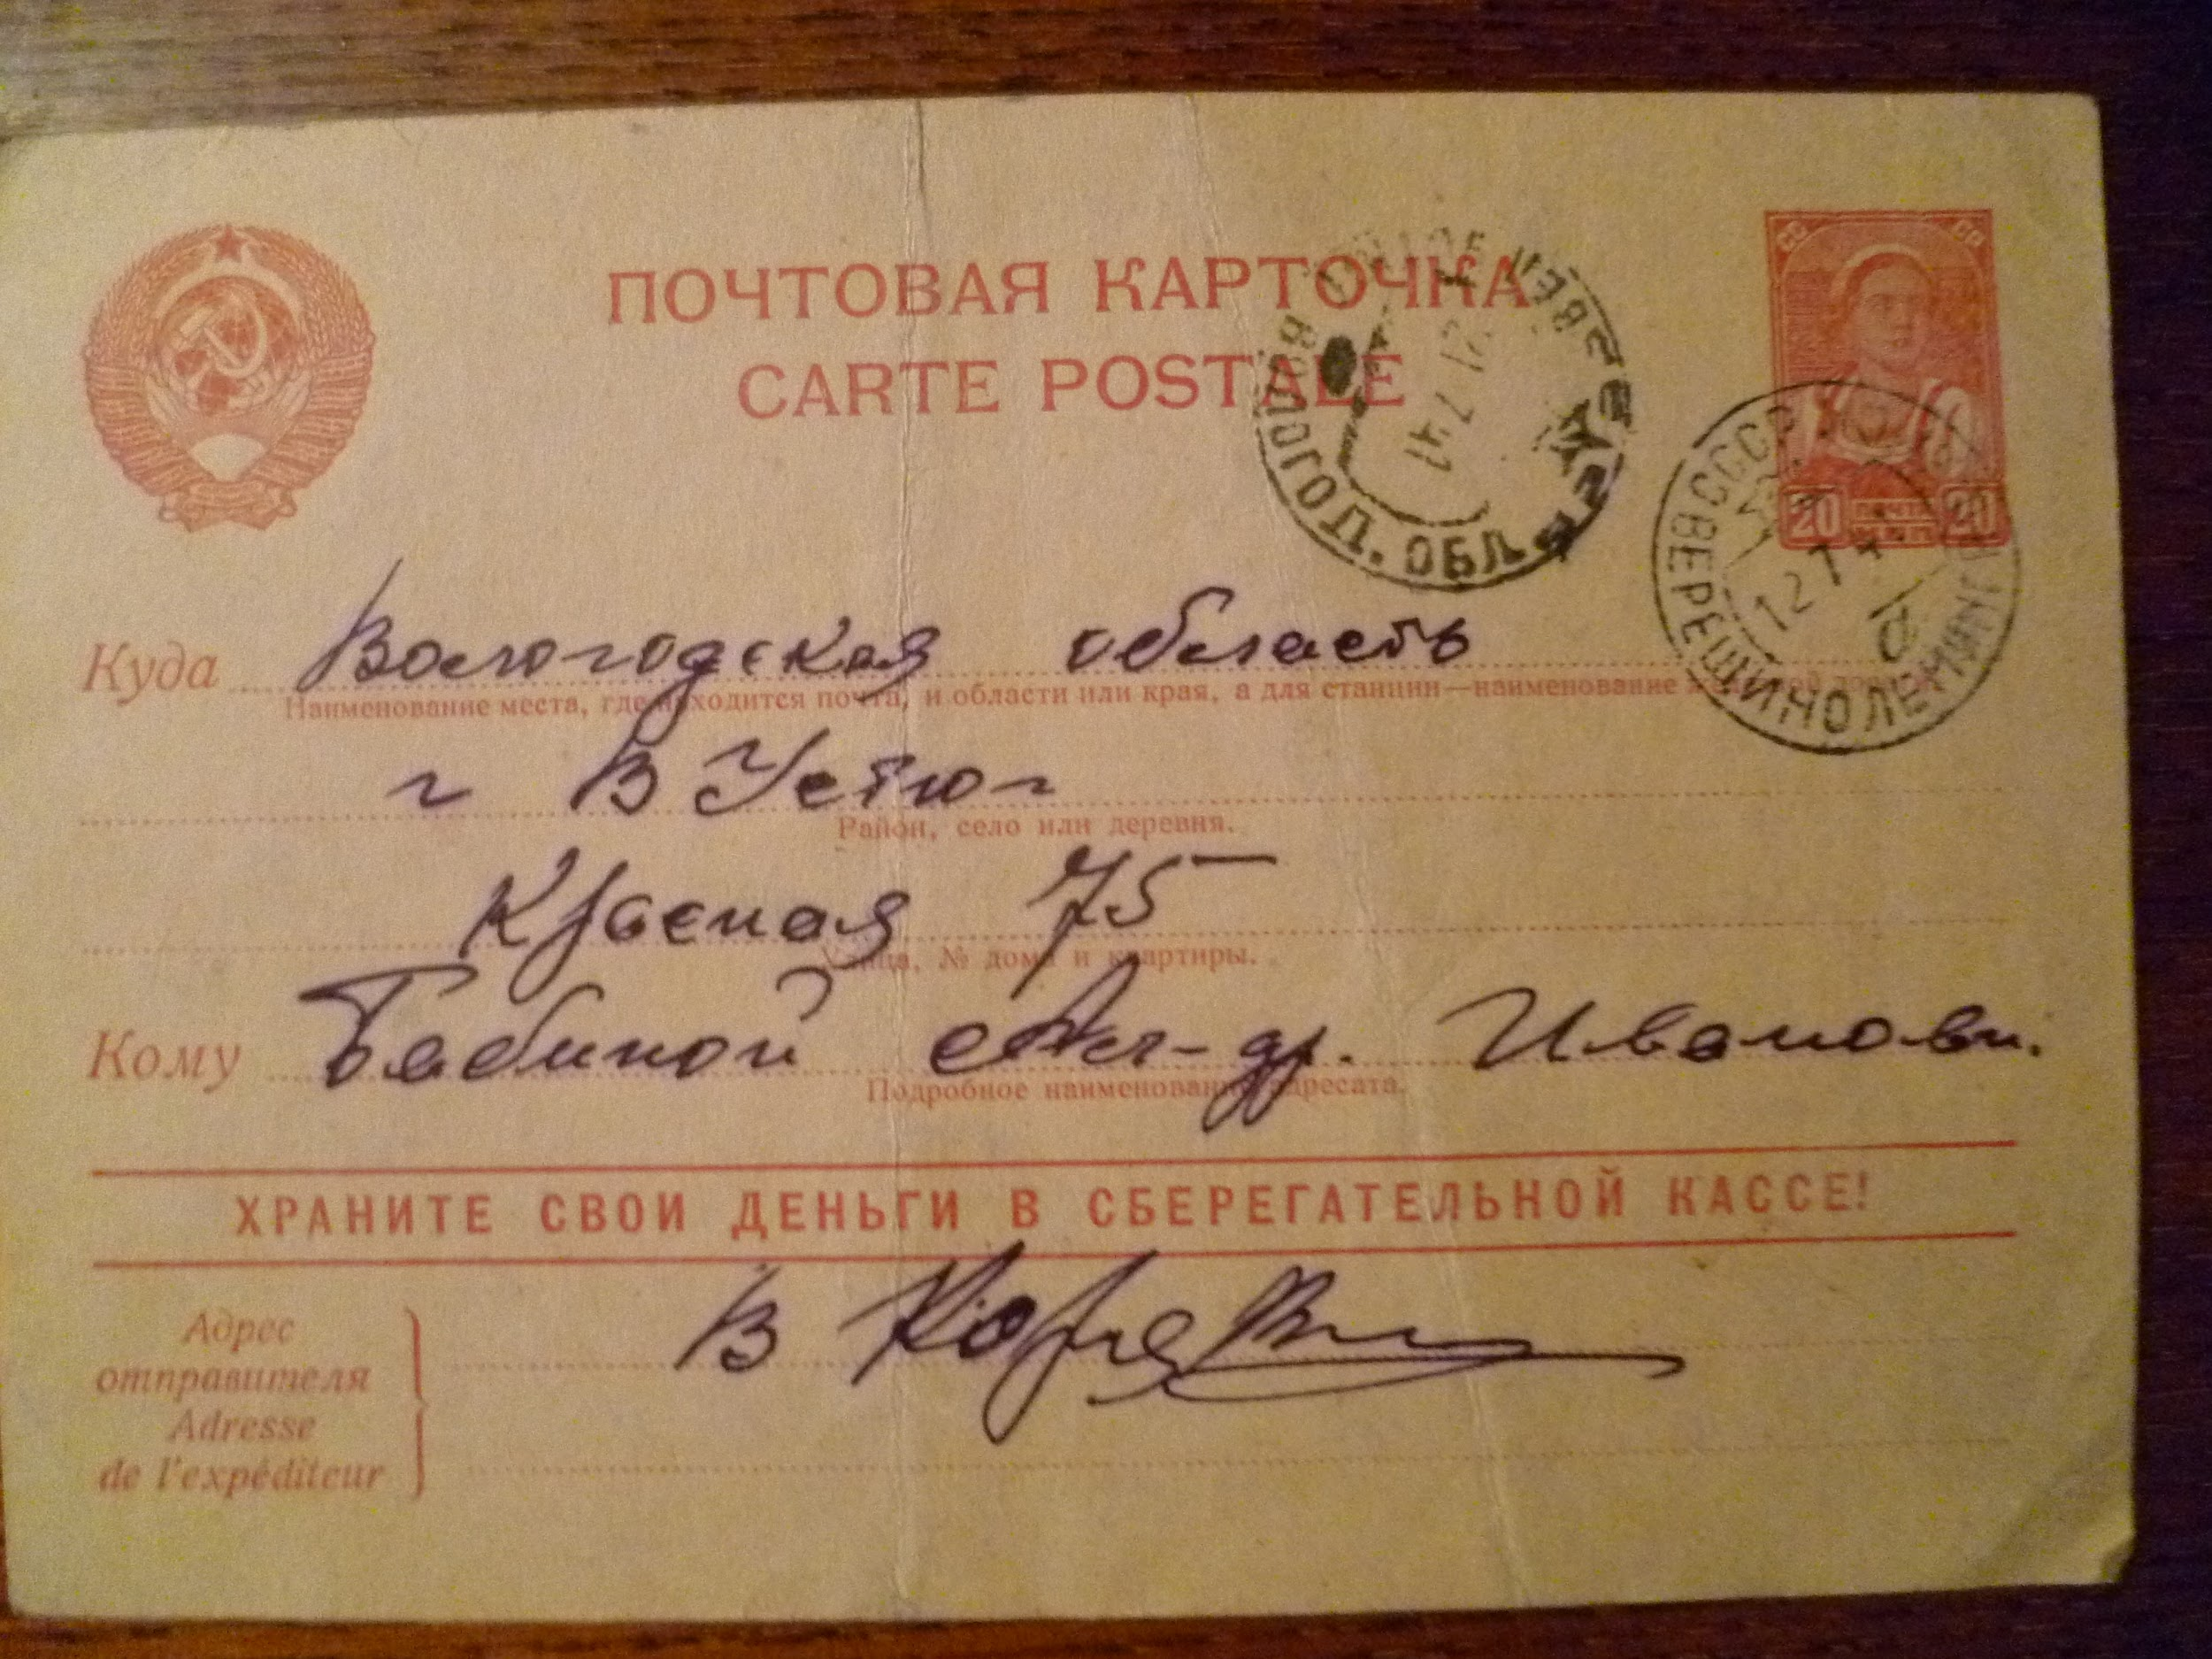 ПОЧТОВАЯ КАРТОЧКА
CARTE POSTALE
20 ПОЧТА 20
ВОЛОГОД. ОБЛ
21 7 41
СССР
12 7 4
ВЕРЕЩИНО ЛЕНИНГ
Куда Вологодская область
Наименование места, где находится почта, и области или края, а для станции—наименование
г В Устюг
Район, село или деревня.
Красная 75
Улица, № дома и квартиры.
Кому Бабиной Ал-др. Ивановн.
Подробное наименование адресата.
ХРАНИТЕ СВОИ ДЕНЬГИ В СБЕРЕГАТЕЛЬНОЙ КАССЕ!
Адрес
отправителя
Adresse
de l'expéditeur
В